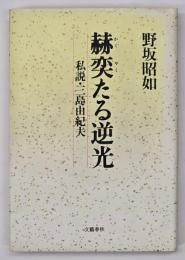 野坂昭如
赫奕たる逆光
かくやく
私説・三島由紀夫
文藝春秋